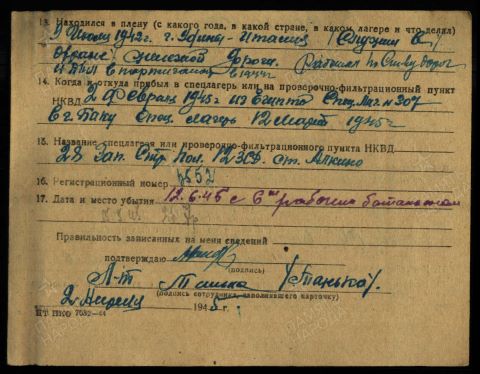 13. Находился в плену (с какого года, в какой стране, в каком лагере и что делал)
9 Июля 1942 г. г. Удина - Италия
охране железной дороги. Работал по
и был в партизанах в 1944 г
14. Когда и откуда прибыл в спецлагерь или на проверочно-фильтрационный пункт
НКВД 2 Февраля 1945 г из Египта Спец. Лаг. № 307
в г. Баку Спец лагерь 12 Марта 1945 г
15. Название спецлагеря или проверочно-фильтрационного пункта НКВД
28 Зап. Стр. Пол. 12 ЗСД. ст. Алкино
16. Регистрационный номер 6552
17. Дата и место убытия 12.6.45 с 6м рабочим батальоном
Правильность записанных на меня сведений
подтверждаю
(подпись)
Л-т
(подпись сотрудника, заполнявшего карточку)
2 Апреля 1945 г.
ЦТ НКО 7032—44